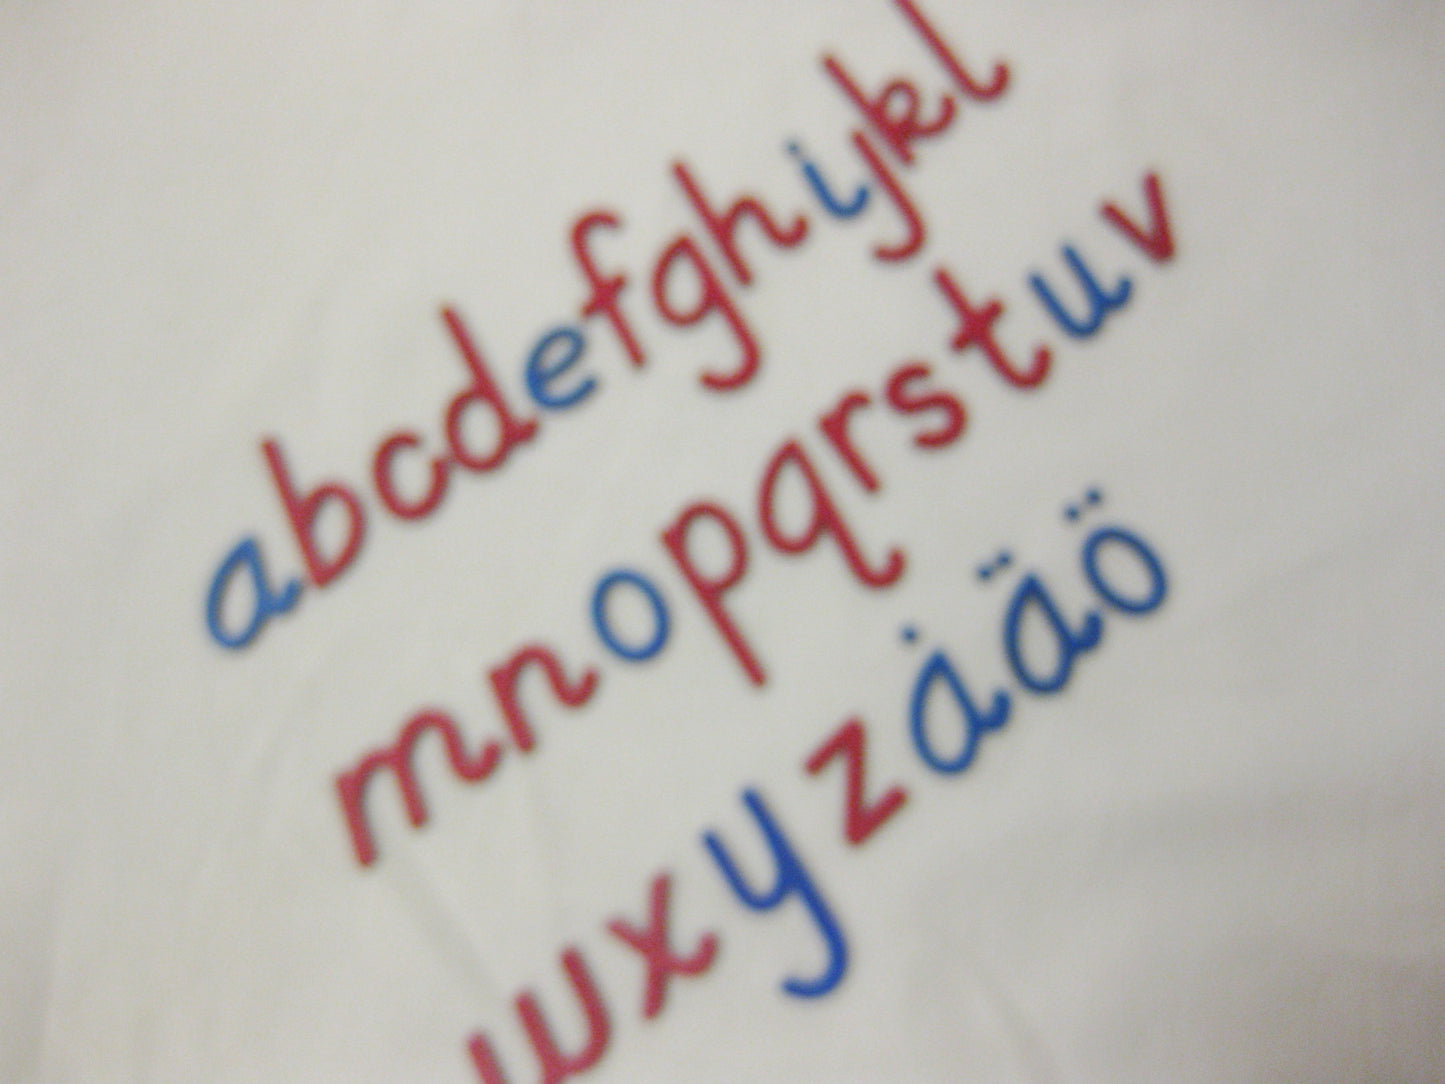 abcdefghijkl
mnopqrstuv
wxyzåäö